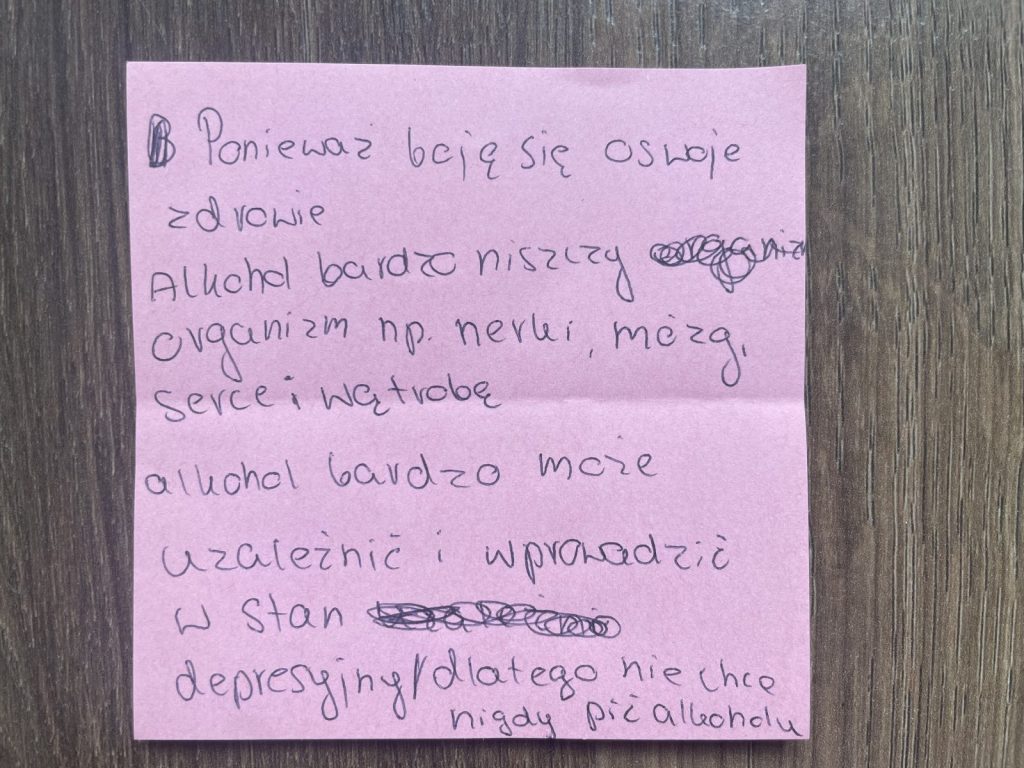 Ponieważ boję się o swoje
zdrowie
Alkohol bardzo niszczy
organizm np. nerki, mózg,
serce i wątrobę
alkohol bardzo może
uzależnić i wprowadzić
w stan
depresyjny/dlatego nie chcę
nigdy pić alkoholu